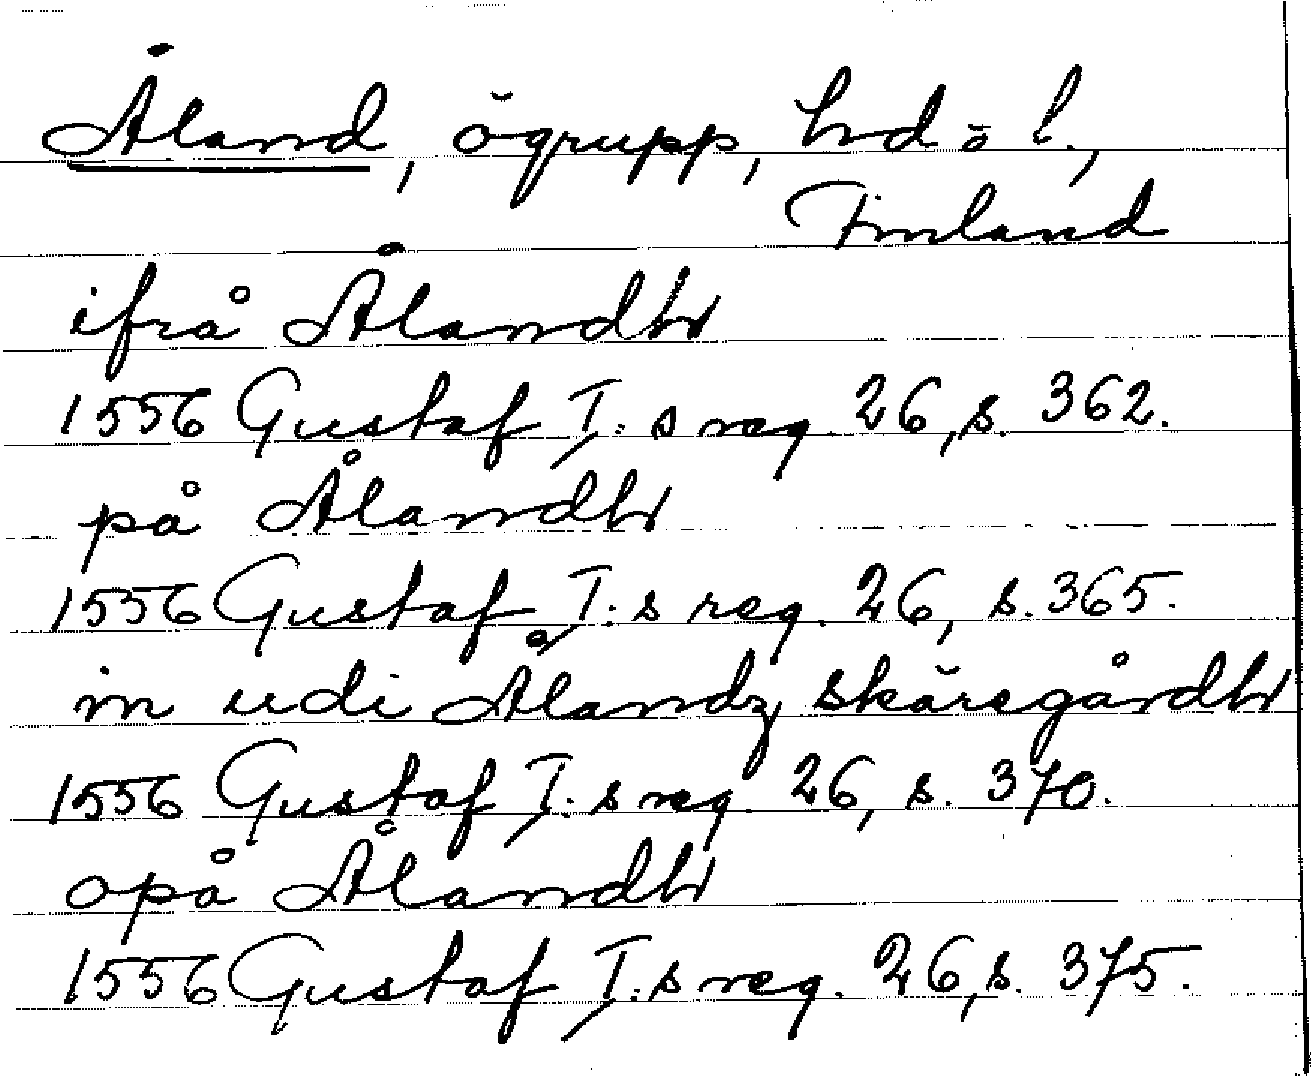 Åland, ögrupp, hd o l.,
Finland
ifrå Ålandh
1556 Gustaf I:s reg. 26, s. 362.
på Ålandh
1556 Gustaf I:s reg. 26, s. 365.
in udi Ålandz skäregårdh
1556 Gustaf I:s reg. 26, s. 370.
opå Ålandh
1556 Gustaf I:s reg. 26, s. 375.